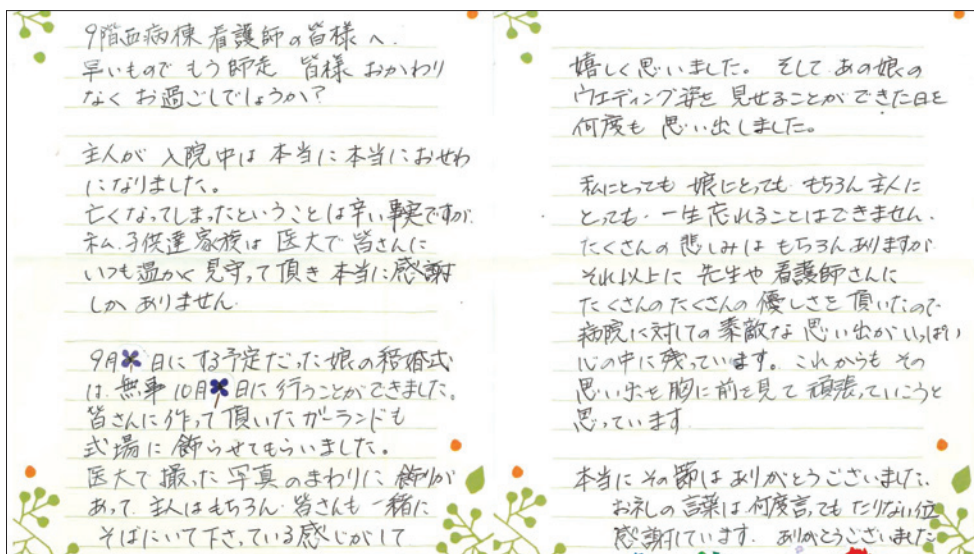 9階西病棟 看護師の皆様へ.
早いもので もう師走 皆様 おかわり
なく お過ごしでしょうか?
主人が 入院中は 本当に 本当に おせわ
になりました。
亡くなってしまったということは辛い事実ですが.
私.子供達 家族は 医大で 皆さんに
いつも温かく 見守って頂き 本当に感謝
しか ありません.
9月 日にする予定だった娘の結婚式
は.無事 10月 日に行うことができました。
皆さんに作って頂いたガーランドも
式場に 飾らせてもらいました。
医大で 撮った 写真 のまわりに 飾りが
あって.主人はもちろん.皆さんも 一緒に
そばにいて下さっている感じがして
嬉しく思いました。 そして あの娘の
ウエディング姿を 見せることができた日を
何度も 思い出しました。
私にとっても 娘にとっても.もちろん 主人に
とっても.一生忘れることはできません.
たくさんの 悲しみは もちろんありますが
それ以上に 先生や 看護師さんに
たくさんのたくさんの 優しさを 頂いたので
病院に対しての 素敵な 思い出がいっぱい
心の中に 残っています。これからも その
思い出を 胸に 前を見て 頑張っていこうと
思っています
本当に その節は ありがとうございました.
お礼の言葉は 何度言っても たりない位
感謝しています. ありがとうございました